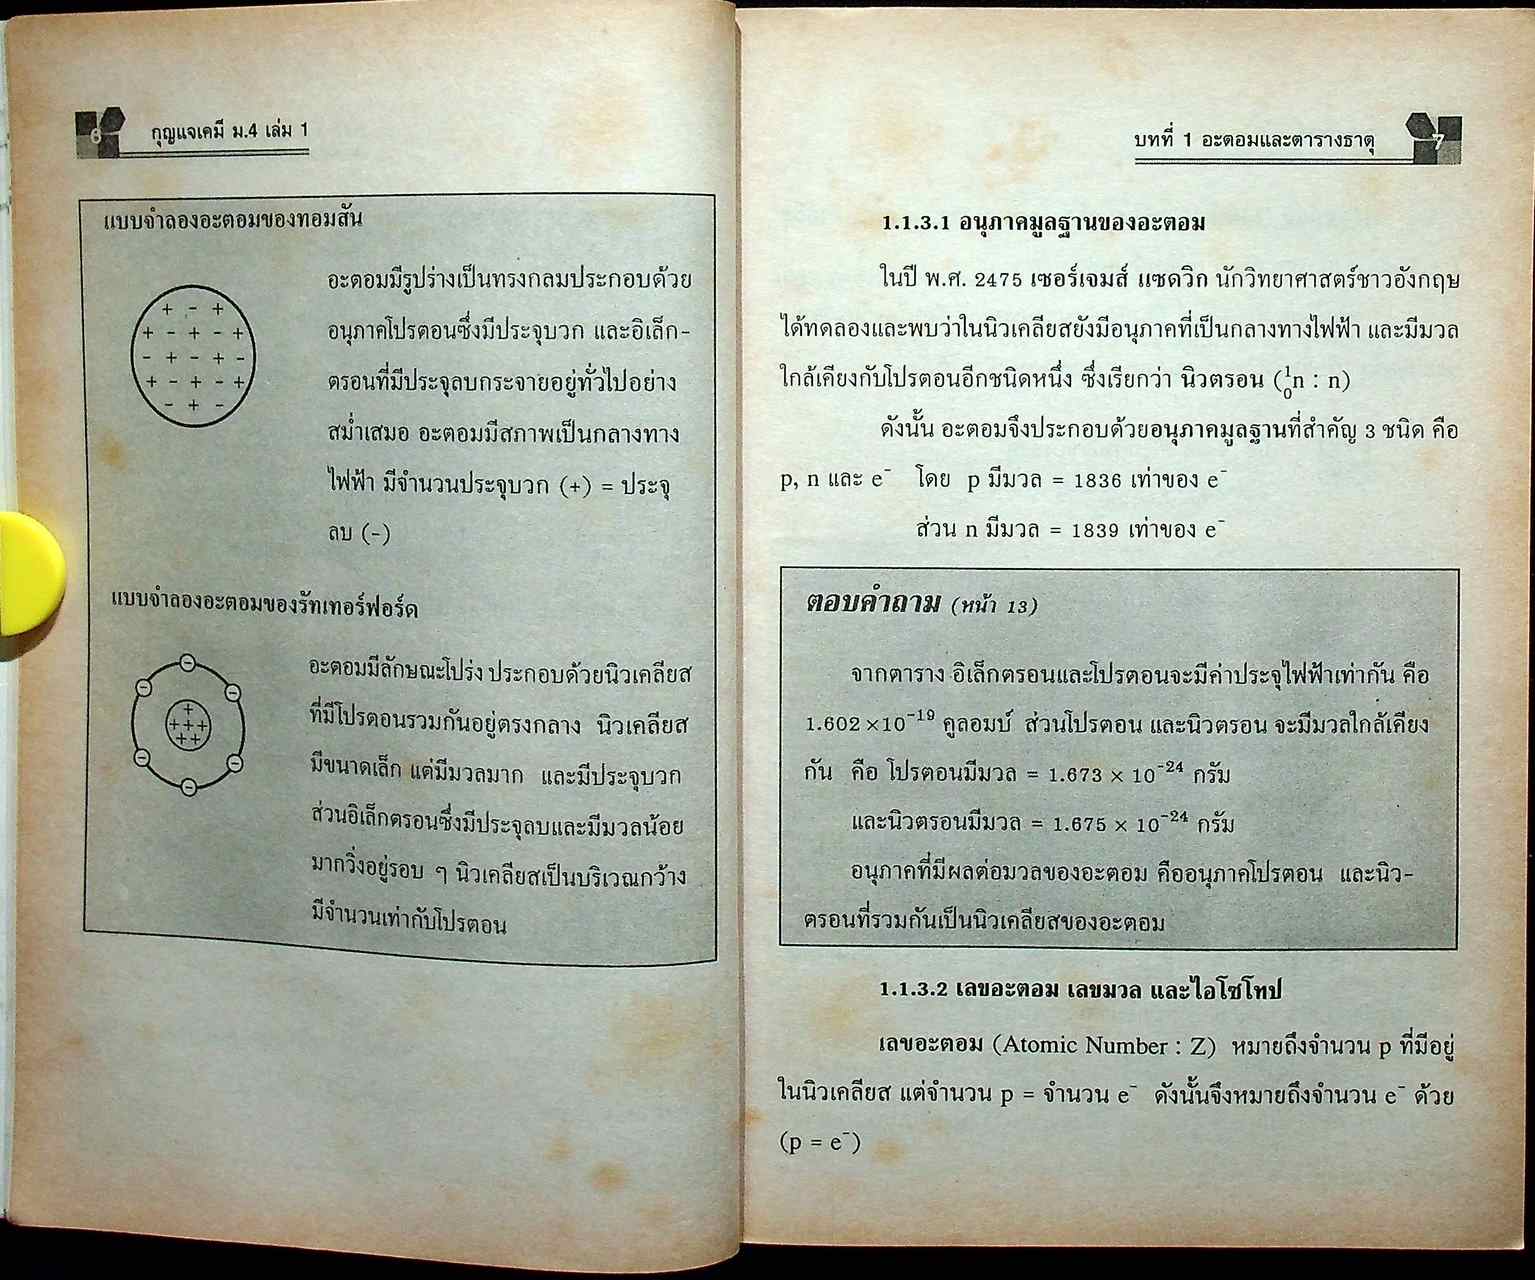 6
กุญแจเคมี ม.4 เล่ม 1
แบบจำลองอะตอมของทอมสัน
+ - +
+ - + - +
- + - + -
+ - + - +
- + -
อะตอมมีรูปร่างเป็นทรงกลมประกอบด้วย
อนุภาคโปรตอนซึ่งมีประจุบวก และอิเล็ก-
ตรอนที่มีประจุลบกระจายอยู่ทั่วไปอย่าง
สม่ำเสมอ อะตอมมีสภาพเป็นกลางทาง
ไฟฟ้า มีจำนวนประจุบวก (+) = ประจุ
ลบ (-)
แบบจำลองอะตอมของรัทเทอร์ฟอร์ด
อะตอมมีลักษณะโปร่ง ประกอบด้วยนิวเคลียส
ที่มีโปรตอนรวมกันอยู่ตรงกลาง นิวเคลียส
มีขนาดเล็ก แต่มีมวลมาก และมีประจุบวก
ส่วนอิเล็กตรอนซึ่งมีประจุลบและมีมวลน้อย
มากวิ่งอยู่รอบ ๆ นิวเคลียสเป็นบริเวณกว้าง
มีจำนวนเท่ากับโปรตอน
-
- -
+
+++
++
- -
-
บทที่ 1 อะตอมและตารางธาตุ
7
1.1.3.1 อนุภาคมูลฐานของอะตอม
ในปี พ.ศ. 2475 เซอร์เจมส์ แชดวิก นักวิทยาศาสตร์ชาวอังกฤษ
ได้ทดลองและพบว่าในนิวเคลียสยังมีอนุภาคที่เป็นกลางทางไฟฟ้า และมีมวล
ใกล้เคียงกับโปรตอนอีกชนิดหนึ่ง ซึ่งเรียกว่า นิวตรอน (¹₀n : n)
ดังนั้น อะตอมจึงประกอบด้วยอนุภาคมูลฐานที่สำคัญ 3 ชนิด คือ
p, n และ e⁻ โดย p มีมวล = 1836 เท่าของ e⁻
ส่วน n มีมวล = 1839 เท่าของ e⁻
ตอบคำถาม (หน้า 13)
จากตาราง อิเล็กตรอนและโปรตอนจะมีค่าประจุไฟฟ้าเท่ากัน คือ
1.602 ×10⁻¹⁹ คูลอมบ์ ส่วนโปรตอน และนิวตรอน จะมีมวลใกล้เคียง
กัน คือ โปรตอนมีมวล = 1.673 × 10⁻²⁴ กรัม
และนิวตรอนมีมวล = 1.675 × 10⁻²⁴ กรัม
อนุภาคที่มีผลต่อมวลของอะตอม คืออนุภาคโปรตอน และนิว-
ตรอนที่รวมกันเป็นนิวเคลียสของอะตอม
1.1.3.2 เลขอะตอม เลขมวล และไอโซโทป
เลขอะตอม (Atomic Number : Z) หมายถึงจำนวน p ที่มีอยู่
ในนิวเคลียส แต่จำนวน p = จำนวน e⁻ ดังนั้นจึงหมายถึงจำนวน e⁻ ด้วย
(p = e⁻)